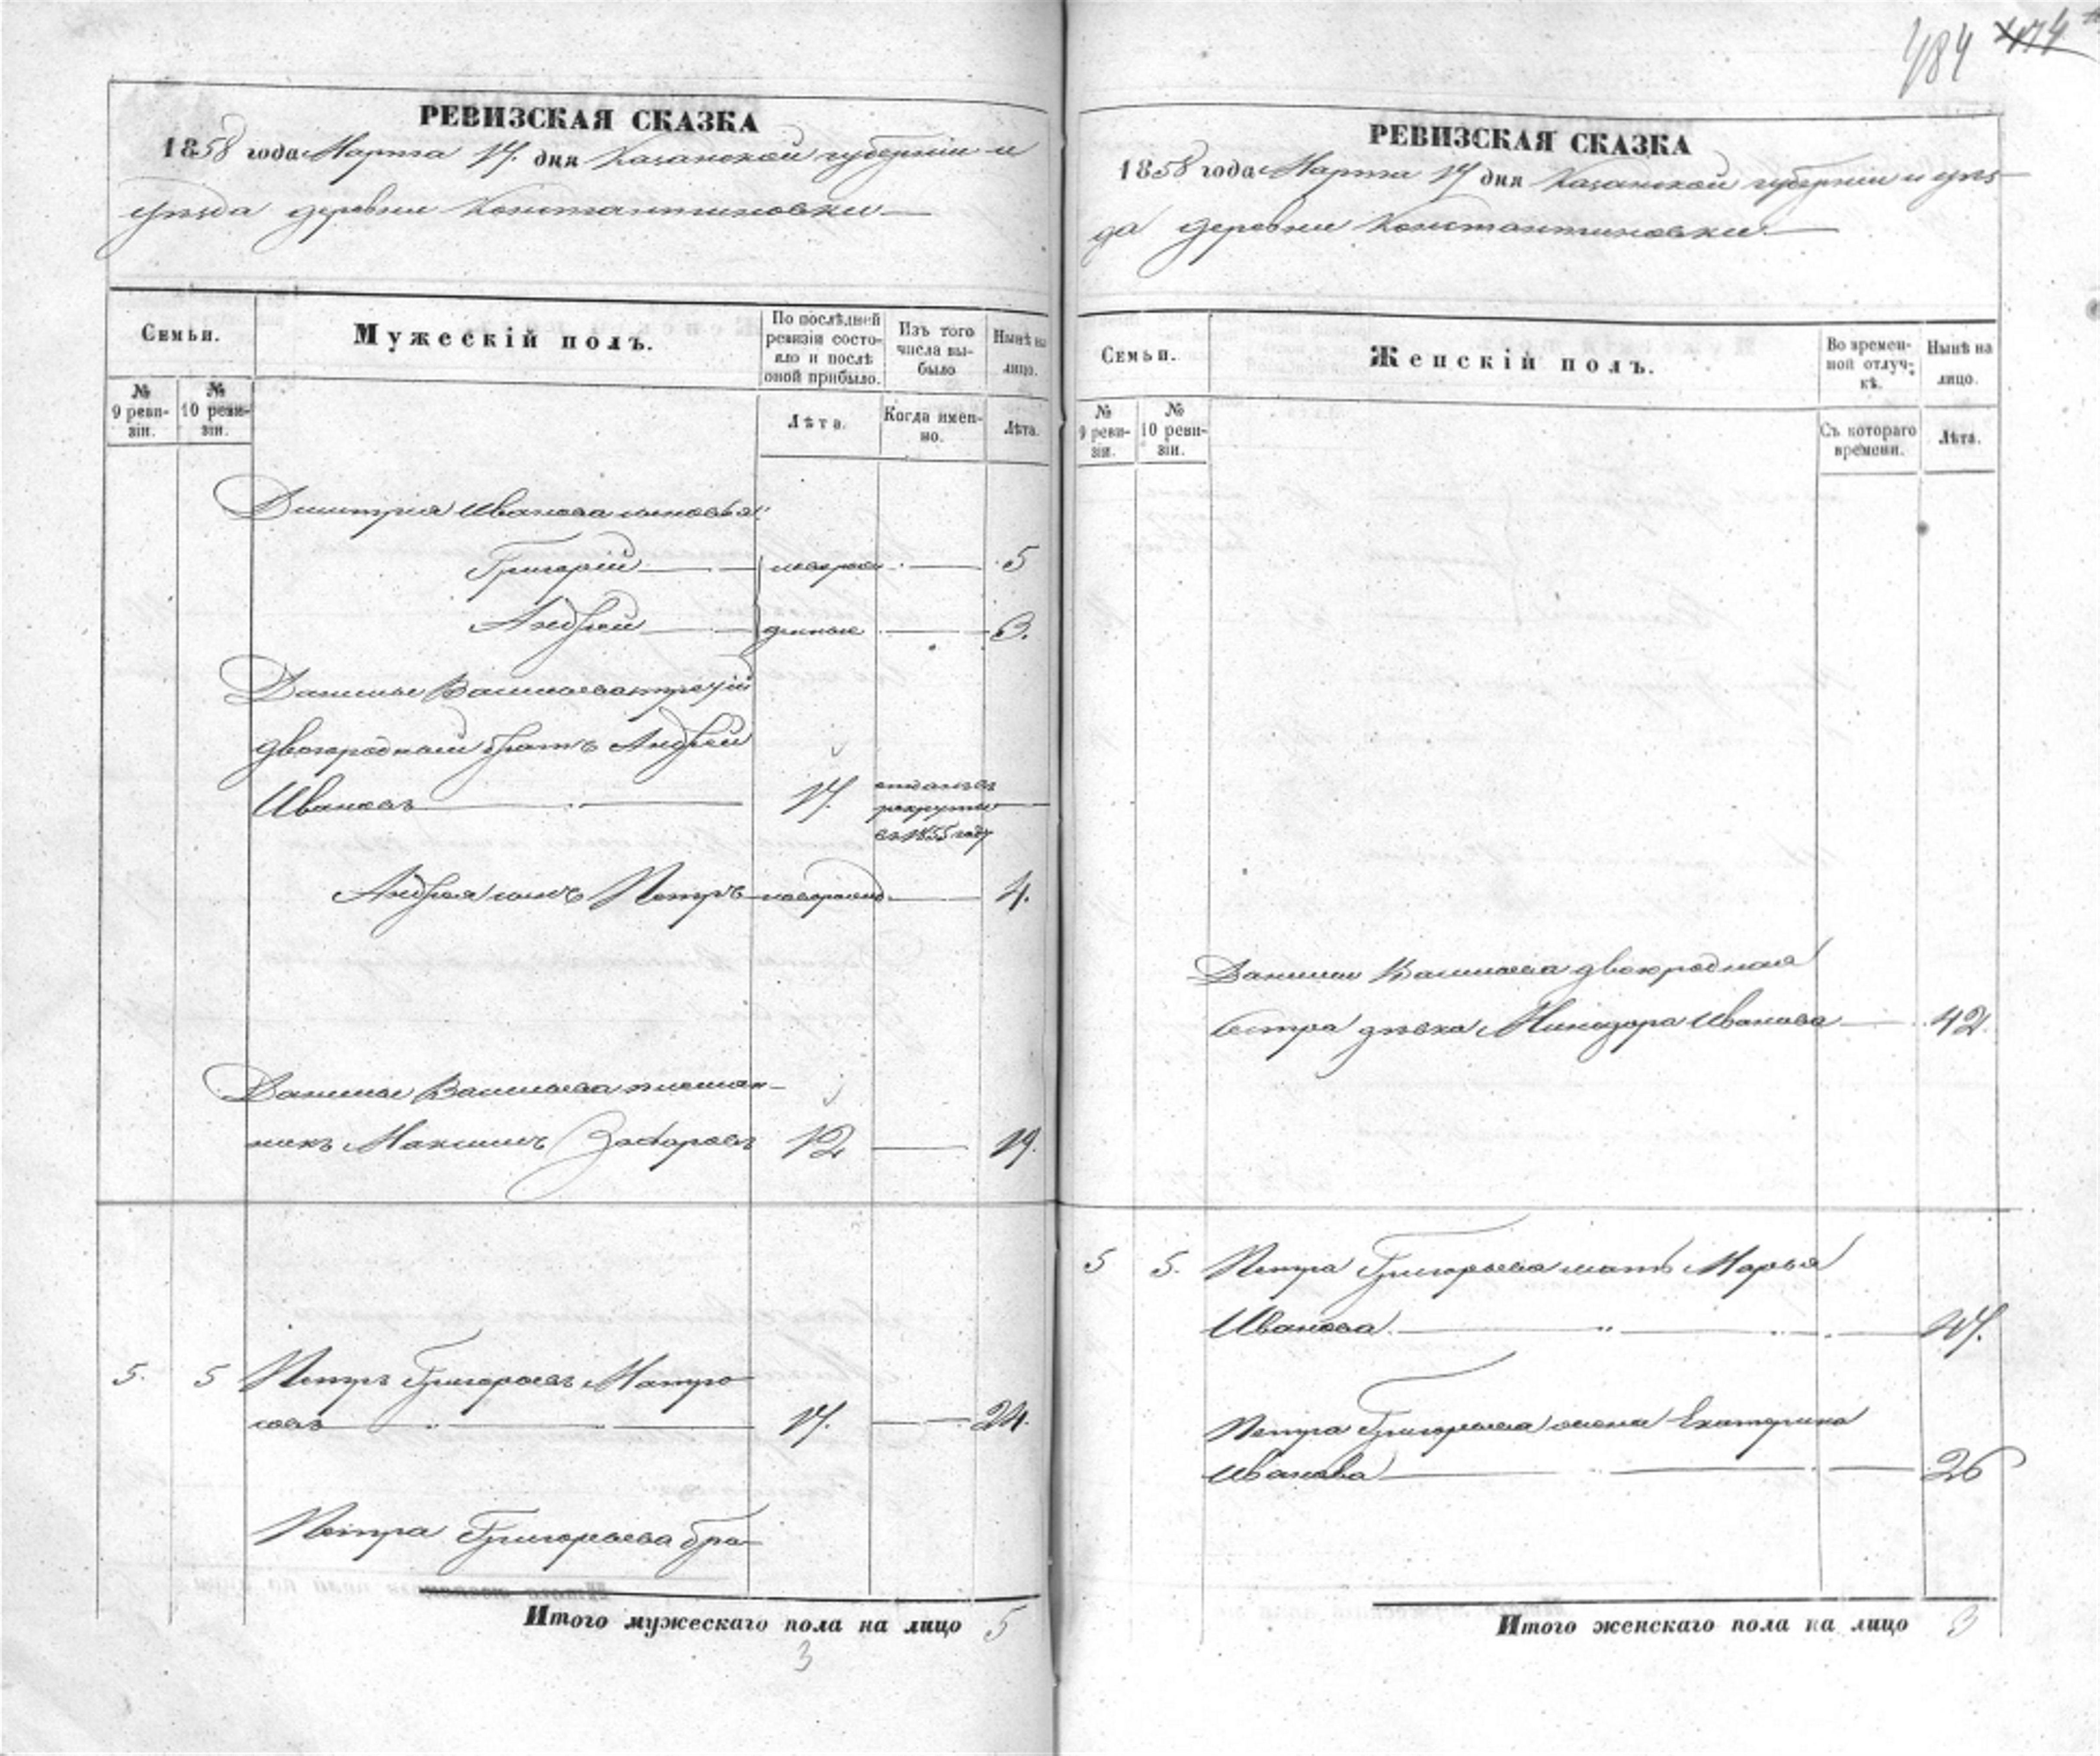 484 474
РЕВИЗСКАЯ СКАЗКА
1858 года Марта 17. дня Казанской губерніи и
уѣзда деревни Константиновки
Семьи.
Мужескій полъ.
По послѣдней ревизіи состояло и послѣ оной прибыло.
Изъ того числа выбыло
Нынѣ на лицо.
№ 9 ревизіи.
№ 10 ревизіи.
Лѣта.
Когда именно.
Лѣта.
Дмитрія Иванова сыновья:
Григорій новорож 5
Андрей денные 3.
Данилы Васильева третій
двоюродный братъ Андрей
Ивановъ 17. отданъ въ
рекруты
въ 1855 году
Андрея сынъ Петръ новорожд. 4.
Данилы Васильева племян-
никъ Максимъ Захаровъ 12 19.
5. 5 Петръ Григорьевъ Матро
совъ 17. 24.
Петра Григорьева бра-
Итого мужескаго пола на лицо 5
3
РЕВИЗСКАЯ СКАЗКА
1858 года Марта 17 дня Казанской губерніи и уѣз-
да деревни Константиновки.
Семьи.
Женскій полъ.
Во временной отлучкѣ.
Нынѣ на лицо.
№ 9 ревизіи.
№ 10 ревизіи.
Съ котораго времени.
Лѣта.
Данилы Васильева двоюродная
сестра дѣвка Минодора Иванова 42.
5 5. Петра Григорьева мать Марья
Иванова
Петра Григорьева жена Екатерина
Иванова 26
Итого женскаго пола на лицо 3